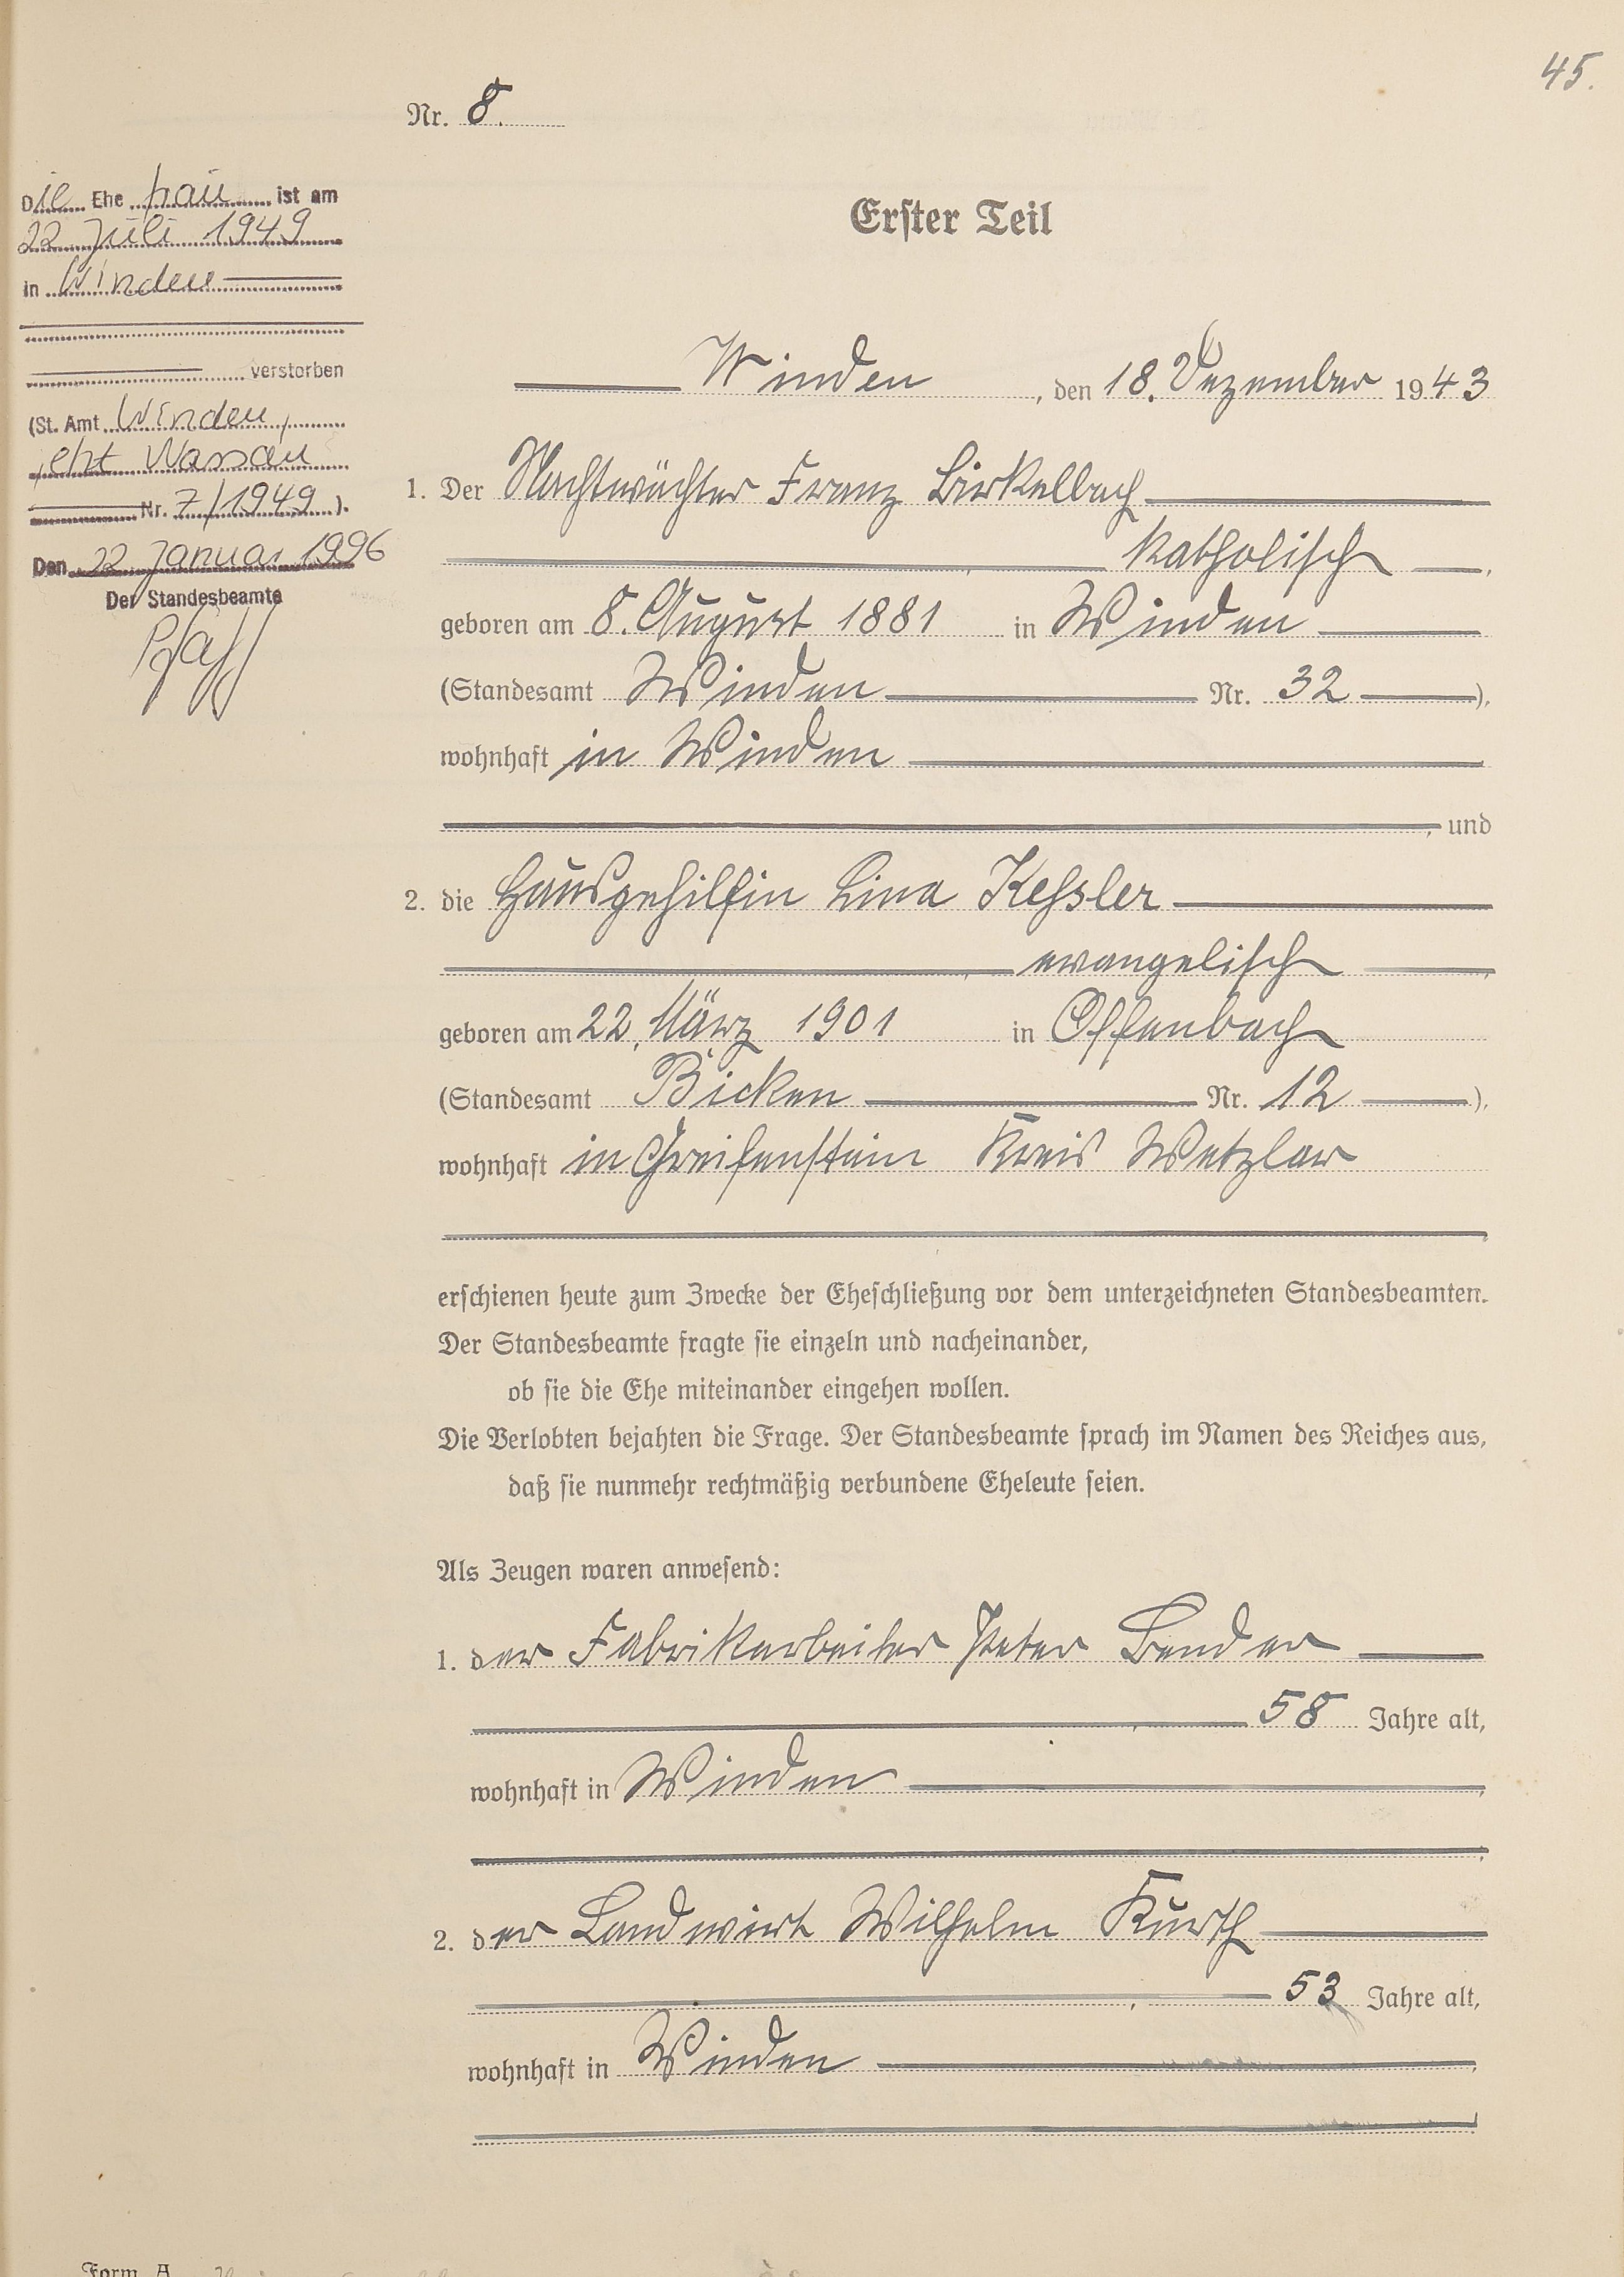 45.
Nr. 8.
Die Ehe frau ist am
22 Juli 1949
in Winden
verstorben
(St. Amt Winden,
jetzt Nassau
Nr. 7/1949 ).
Den 22 Januar 1996
Der Standesbeamte
Pfaff
Erster Teil
Winden, den 18. Dezember 1943
1. Der Nachtwächter Franz Birkelbach
katholisch,
geboren am 8. August 1881 in Winden
(Standesamt Winden Nr. 32 ),
wohnhaft in Winden
, und
2. die Hausgehilfin Lina Keßler
, evangelisch,
geboren am 22. März 1901 in Offenbach
(Standesamt Bicken Nr. 12 ),
wohnhaft in Greifenstein Kreis Wetzlar
erschienen heute zum Zwecke der Eheschließung vor dem unterzeichneten Standesbeamten.
Der Standesbeamte fragte sie einzeln und nacheinander,
ob sie die Ehe miteinander eingehen wollen.
Die Verlobten bejahten die Frage. Der Standesbeamte sprach im Namen des Reiches aus,
daß sie nunmehr rechtmäßig verbundene Eheleute seien.
Als Zeugen waren anwesend:
1. der Fabrikarbeiter Peter Bender
, 58 Jahre alt,
wohnhaft in Winden,
2. der Landwirt Wilhelm Kurth
, 53 Jahre alt,
wohnhaft in Winden,
Form. A